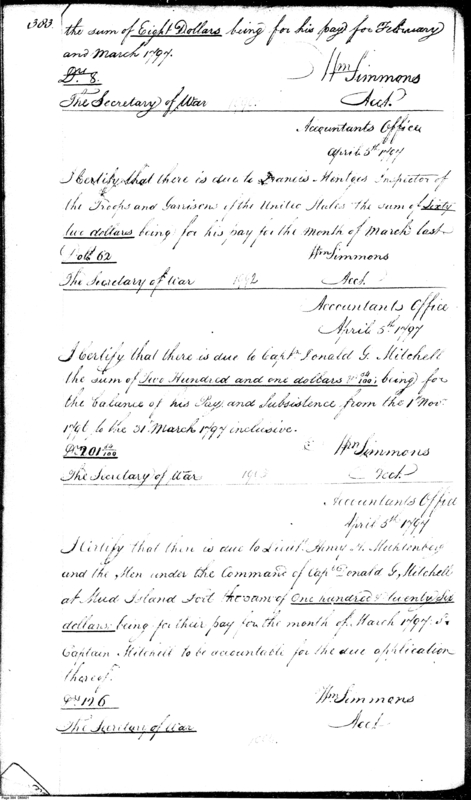 383
the sum of Eight Dollars being for his pay for February
and March 1797.
Drs 8.
Wm Simmons
The Secretary of War
Acct.
Accountants Office
April 5th 1797
I Certify that there is due to Francis Mentges Inspector of
the Troops and Garrisons of the United States the sum of Sixty
two dollars being for his pay for the month of March last
Dolls 62
Wm Simmons
The Secretary of War
Acct.
Accountants Office
April 5th 1797
I Certify that there is due to Captn Donald G. Mitchell
the sum of Two Hundred and one dollars being for
the balance of his Pay and Subsistence from the 1st Novr
1796 to the 31st March 1797 inclusive.
Wm Simmons
The Secretary of War
Acct.
Accountants Office
April 5th 1797
I Certify that there is due to Lieut. Henry Mecklenberg
and the Men under the Command of Captn Donald G. Mitchell
at Mud Island Fort the sum of One hundred & twenty six
dollars being for their pay for the month of March 1797
Captain Mitchell to be accountable for the due application
thereof.
Drs 126
Wm Simmons
The Secretary of War
Acct.